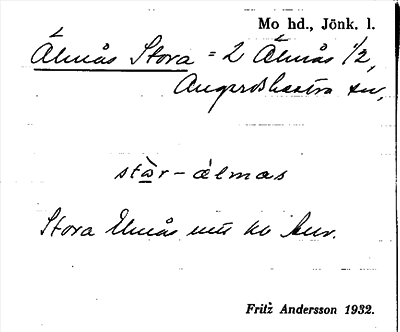 Mo hd., Jönk. l.
Älmås Stora = 2 Älmås 1/2,
Angerdshestra sn,
stàr-álmas
Stora Elmås
Fritz Andersson 1932.